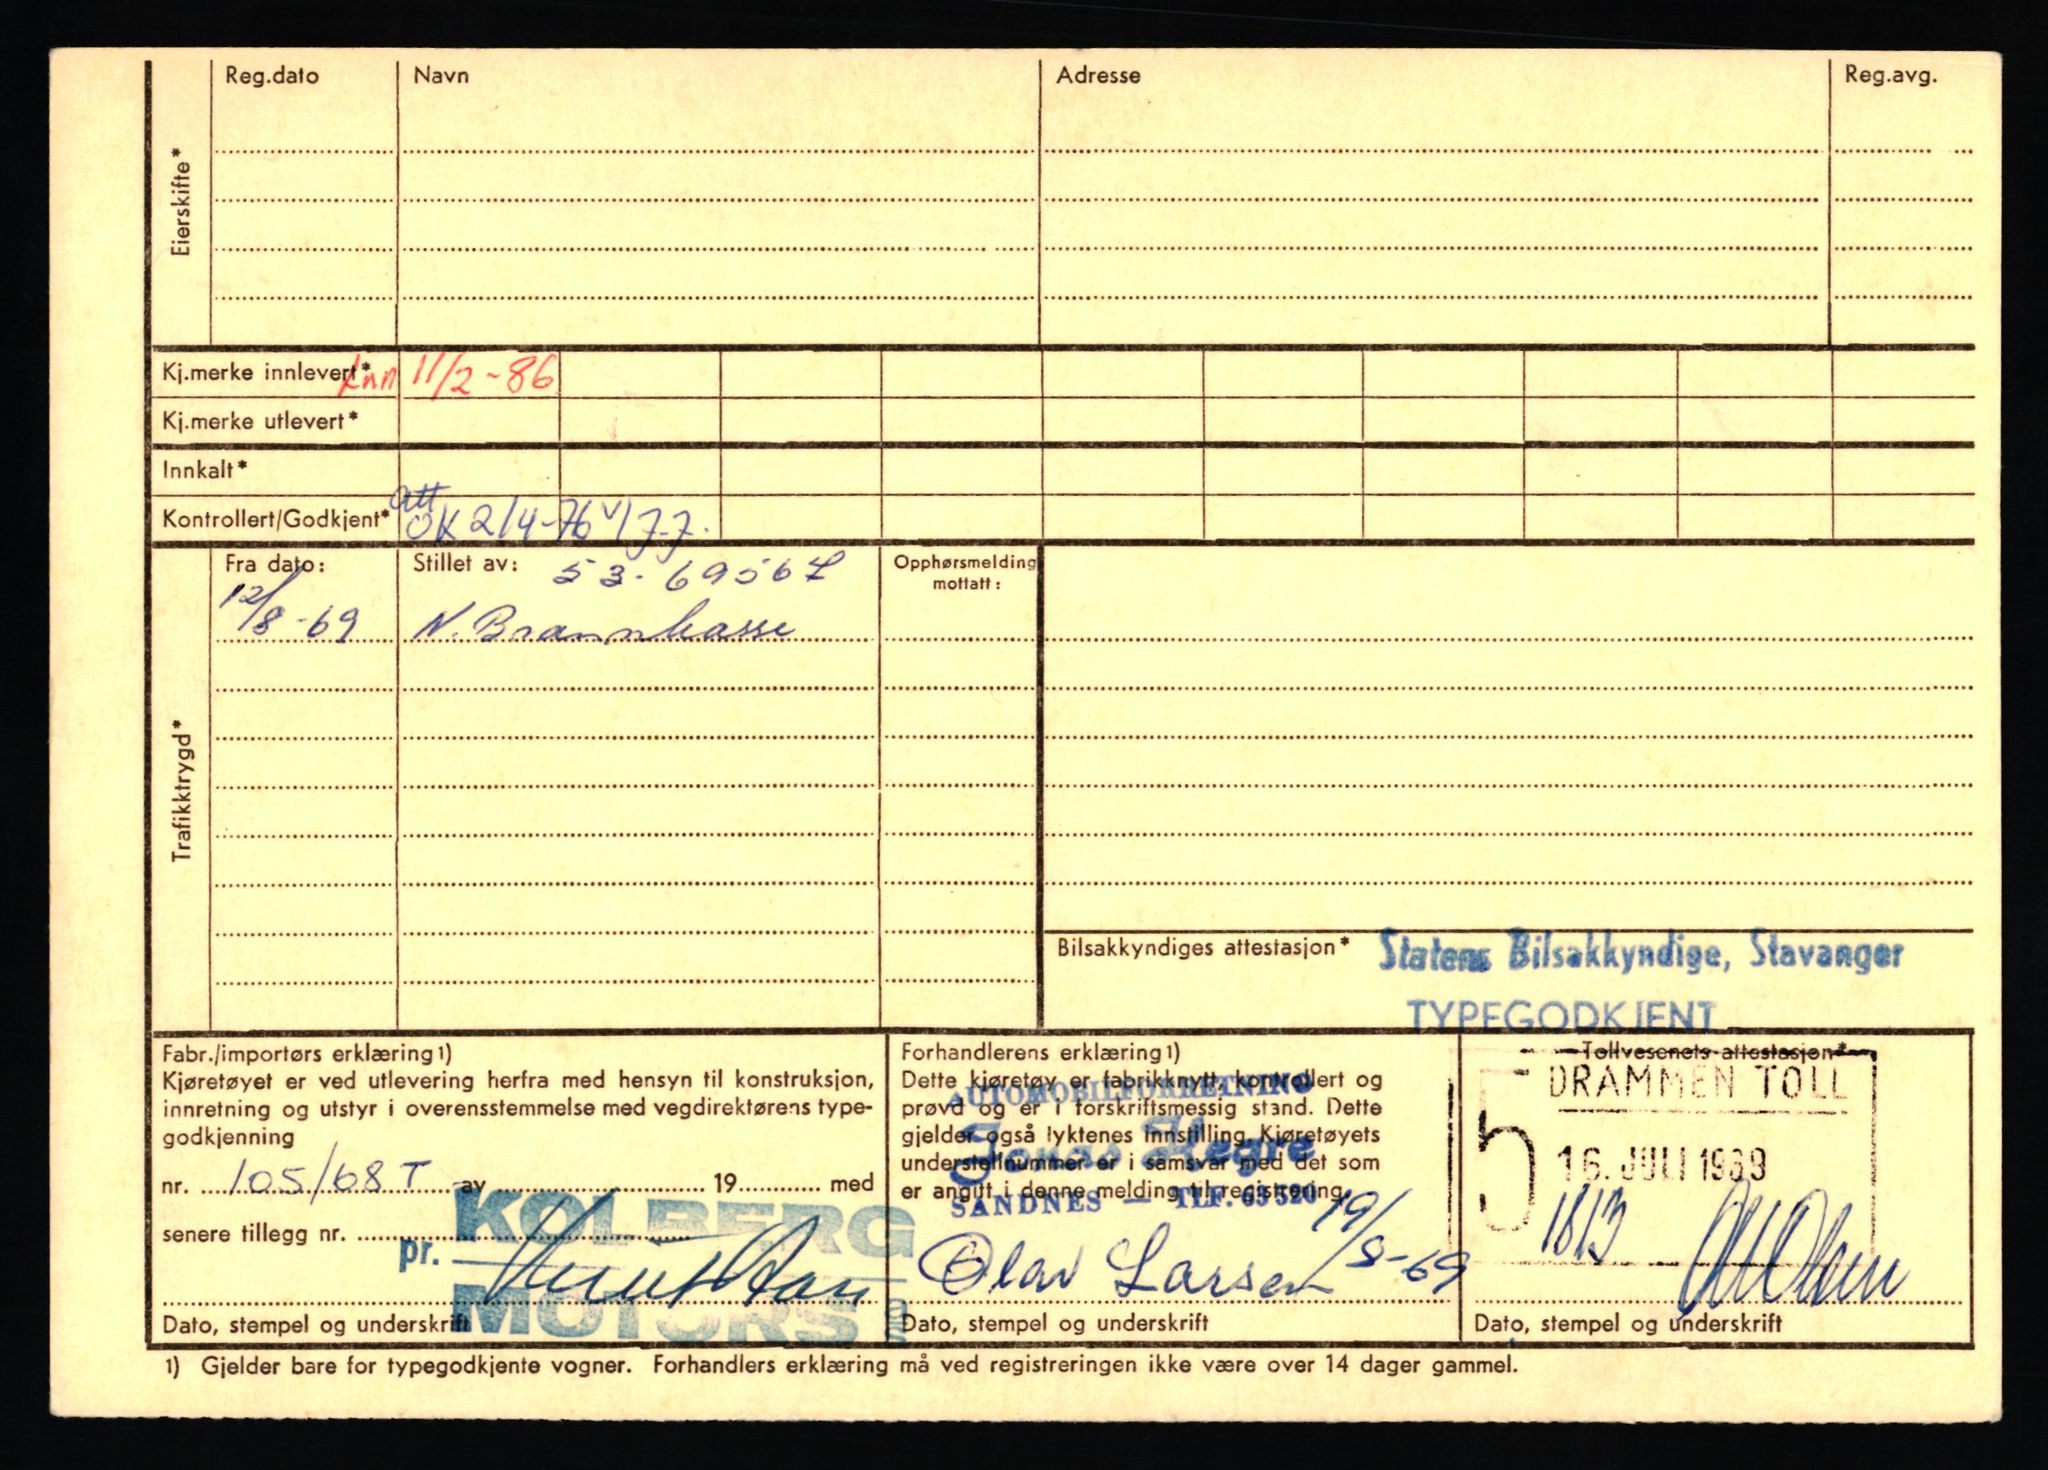 Reg.dato Navn Adresse Reg.avg.
Eierskifte*
Kj.merke innlevert* 11/2-86
Kj.merke utlevert*
Innkalt*
Kontrollert/Godkjent* att OK 2/4-76 v/J.J.
Trafikktrygd*
Fra dato: Stillet av: 53-69567 Opphørsmelding
mottatt:
12/8-69 N. Brannkasse
Bilsakkyndiges attestasjon* Statens Bilsakkyndige, Stavanger
TYPEGODKJENT
Fabr./importørs erklæring1)
Kjøretøyet er ved utlevering herfra med hensyn til konstruksjon,
innretning og utstyr i overensstemmelse med vegdirektørens type-
godkjenning
nr. 105/68 T av 19 med
senere tillegg nr.
pr. KOLBERG
MOTORS
Dato, stempel og underskrift
Forhandlerens erklæring1)
Dette kjøretøy er fabrikknytt, kontrollert og
prøvd og er i forskriftsmessig stand. Dette
gjelder også lyktenes innstilling. Kjøretøyets
understellnummer er i samsvar med det som
er angitt i denne melding til registrering.
AUTOMOBILFORRETNING
Jonas Hegre
SANDNES — TLF. 63 520
Olav Larsen 19/8-69
Dato, stempel og underskrift
Tollvesenets attestasjon*
DRAMMEN TOLL
5
16. JULI 1969
1813
Dato, stempel og underskrift
1) Gjelder bare for typegodkjente vogner. Forhandlers erklæring må ved registreringen ikke være over 14 dager gammel.